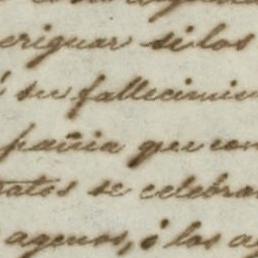 eriguar si los
su fallecimien
pañia que con
ratos se celebra
agenos, ó los a